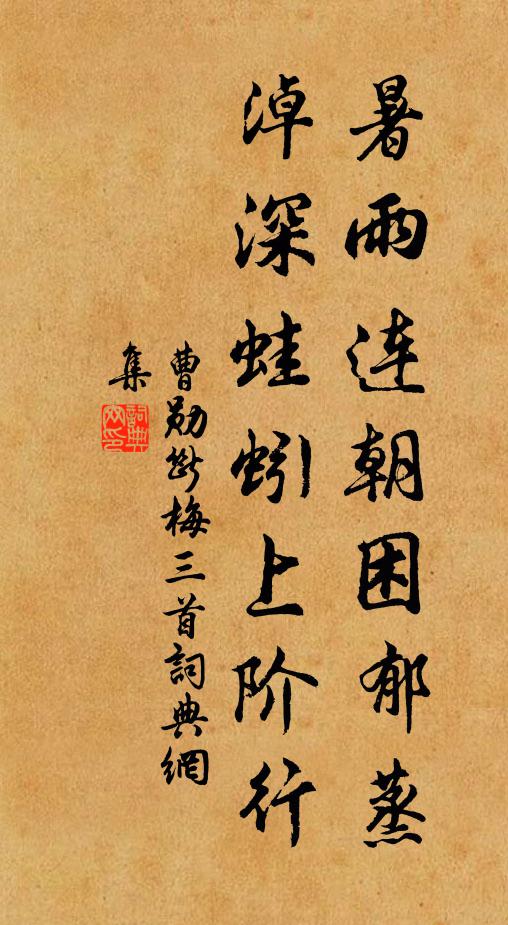 暑雨连朝困郁蒸
淖深蛙蚓上阶行
曹勋断梅三首詞典網
集
詞典
网印